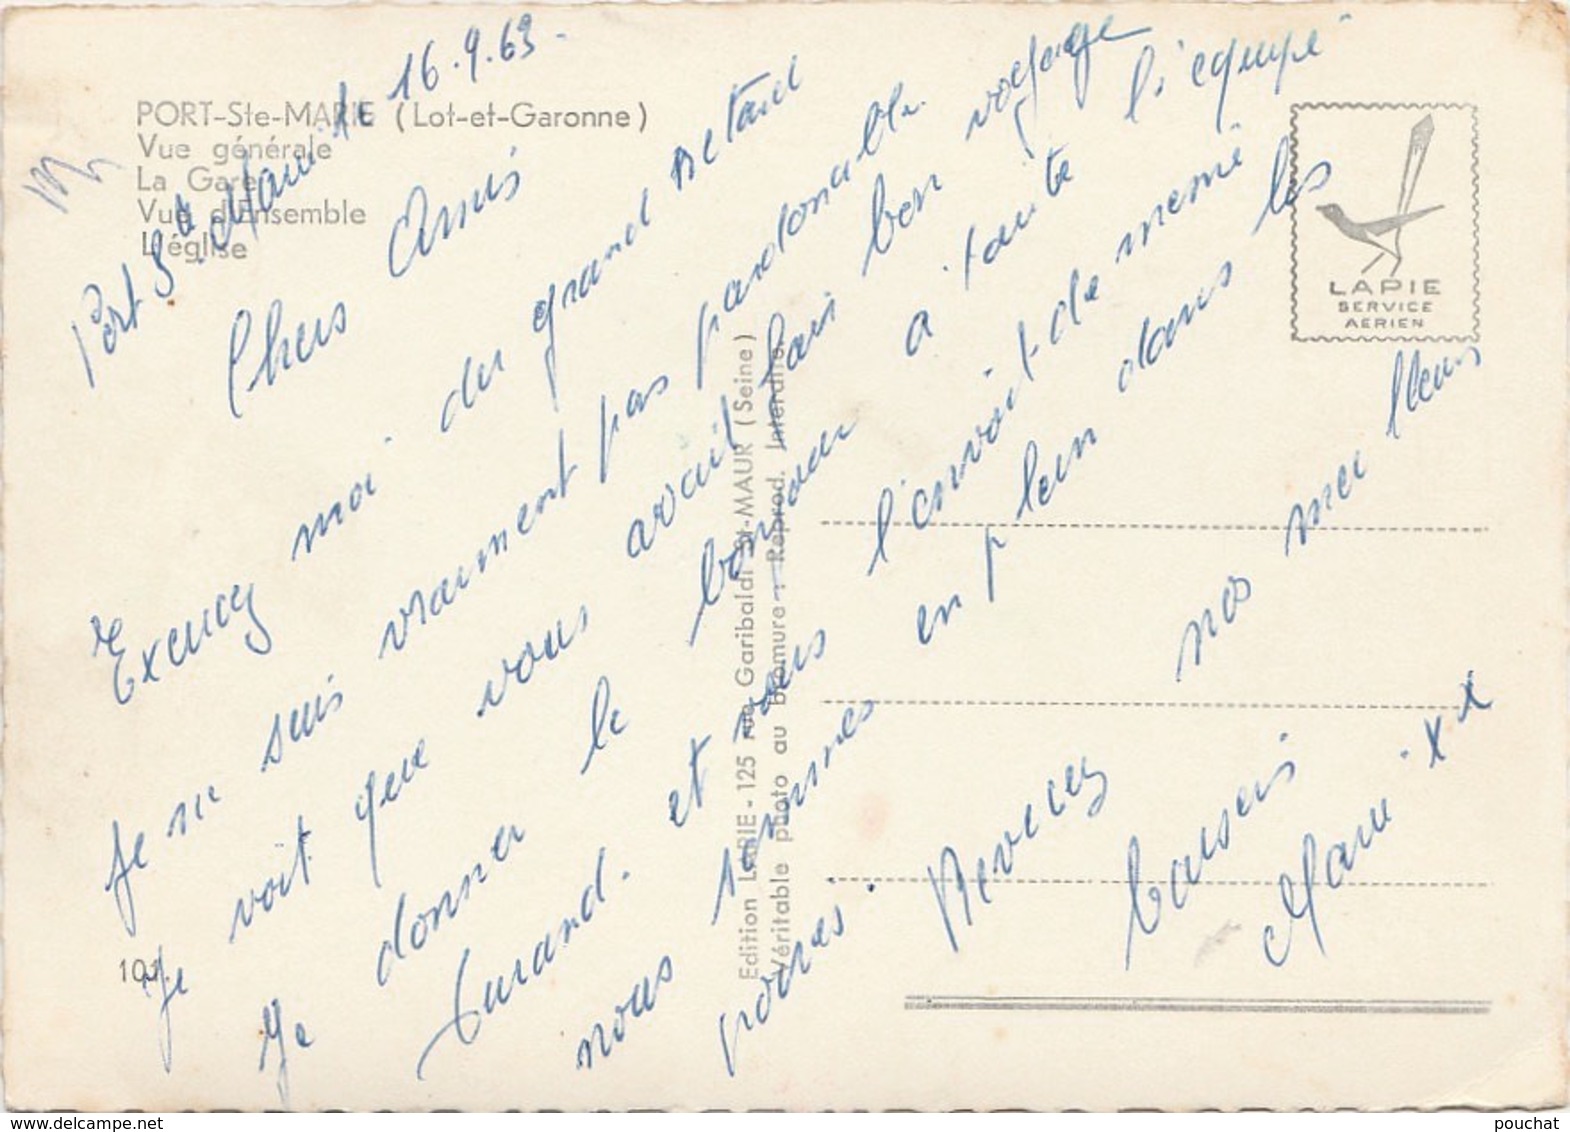 PORT-Ste-MARIE (Lot-et-Garonne)
Vue générale
La Gare
Vue d'Ensemble
L'église
Port Ste Marie le 16.9.63.
Chers Amis
Excucez moi du grand Retard
Je me suis vraiment pas pardonable.
Je voit que vous avait fais bon voyage
Je donner le bonjour a toute l'equipe
Durand. et vous l'envoit de meme
nous sommes en plein dans les
poires.
Recevez nos meilleurs
baisers
Marie xx
LAPIE
SERVICE
AERIEN
Edition LAPIE - 125 rue Garibaldi St-MAUR (Seine)
Véritable photo au bromure : Reprod. Interdite.
101.
www.delcampe.net
pouchat